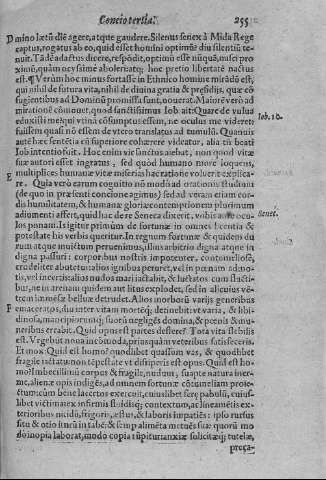 Concio tertia.
255
D mino lætū diē agere, atque gaudere. Silenus senex à Mida Rege
captus, rogatus ab eo, quid esset homini optimū? diu silentiū te-
nuit. Tādē adactus dicere, respōdit, optimū esse nūquā nasci pro
ximū, quàm ocyssimè aboleri
hoc pretio libertatē nactus
est. ¶ Verùm hoc minus fortasse in Ethnico homine mirādū est,
qui nihil de futura vita, nihil de divina gratia & præsidijs, quæ cō
fugientibus ad Dominū promissa sunt, nouerat. Maiorē verò ad
mirationē cōmouet, quod sanctissimus Iob ait: Quare de vulua
eduxisti me? qui vtinā cōsumptus essem, ne oculus me videret:
Iob. 10.
fuissem quasi nō essem de vtero translatus ad tumulū. Quamuis
autē hæc sententia cū superiore cohærere videatur, alia
Iob intentio fuit. Hoc enim vir sanctus aiebat, non quod vitæ
suæ autori esset ingratus, sed quòd humano more loquens,
multiplices humanæ vitæ miserias hac ratione voluerit explica-
E re. Quia verò earum cognitio nō modò ad orationis studium
(de quo in præsenti concione agimus) sed ad veram etiam cor-
dis humilitatem, & humanæ gloriæ contemptionem plurimum
adiumenti affert, quid hac de re Seneca dixerit, vobis ante ocu-
Senec.
los ponam. Is igitur primùm de fortunæ in omnes licentia &
potestate his verbis queritur. In regnum fortunæ & quidem du
rum atque inuictum peruenimus, illius arbitrio digna atque in
digna passuri: corporibus nostris impotenter, contumeliosè,
crudeliter abutetur: alios ignibus peruret, vel in pœnam admo-
tis, vel in
alios nudos mari iactabit, & luctatos cum fluctu
bus, ne in arenam quidem aut littus explodet, sed in alicuius vē-
trem immēsæ belluæ detrudet. Alios morborū varijs generibus
F emaceratos, diu inter vitam mortēq; detinebit: vt varia, & libi-
dinosa, mancipiorumq; suorū negligēs domina, & pœnis & mu-
neribus errabit. Quid opus est partes deflere? Tota vita flebilis
est. Vrgebūt noua incōmoda, priusquàm veteribus satisfeceris.
Et mox: Quid est homo? quodlibet quassum vas, & quodlibet
fragile
Quid est ho-
mo? Imbecillimū corpus & fragile, nudum, suapte natura iner-
me, alienæ opis indigēs, ad omnem fortunæ cōtumeliam proie-
ctum: cùm bene lacertos exercuit, cuiuslibet feræ pabulū, cuius-
libet victima: ex infirmis fluidisq; contextum, ac lineamētis ex-
terioribus nitidū, frigoris, æstus, & laboris impatiēs: ipso rursus
situ & otio iturū in tabē: & semp alimēta metuēs sua: quorū mo
dò inopia laborat, modo copia rūpitur: anxiæ solicitæq; tutelæ,
preca-